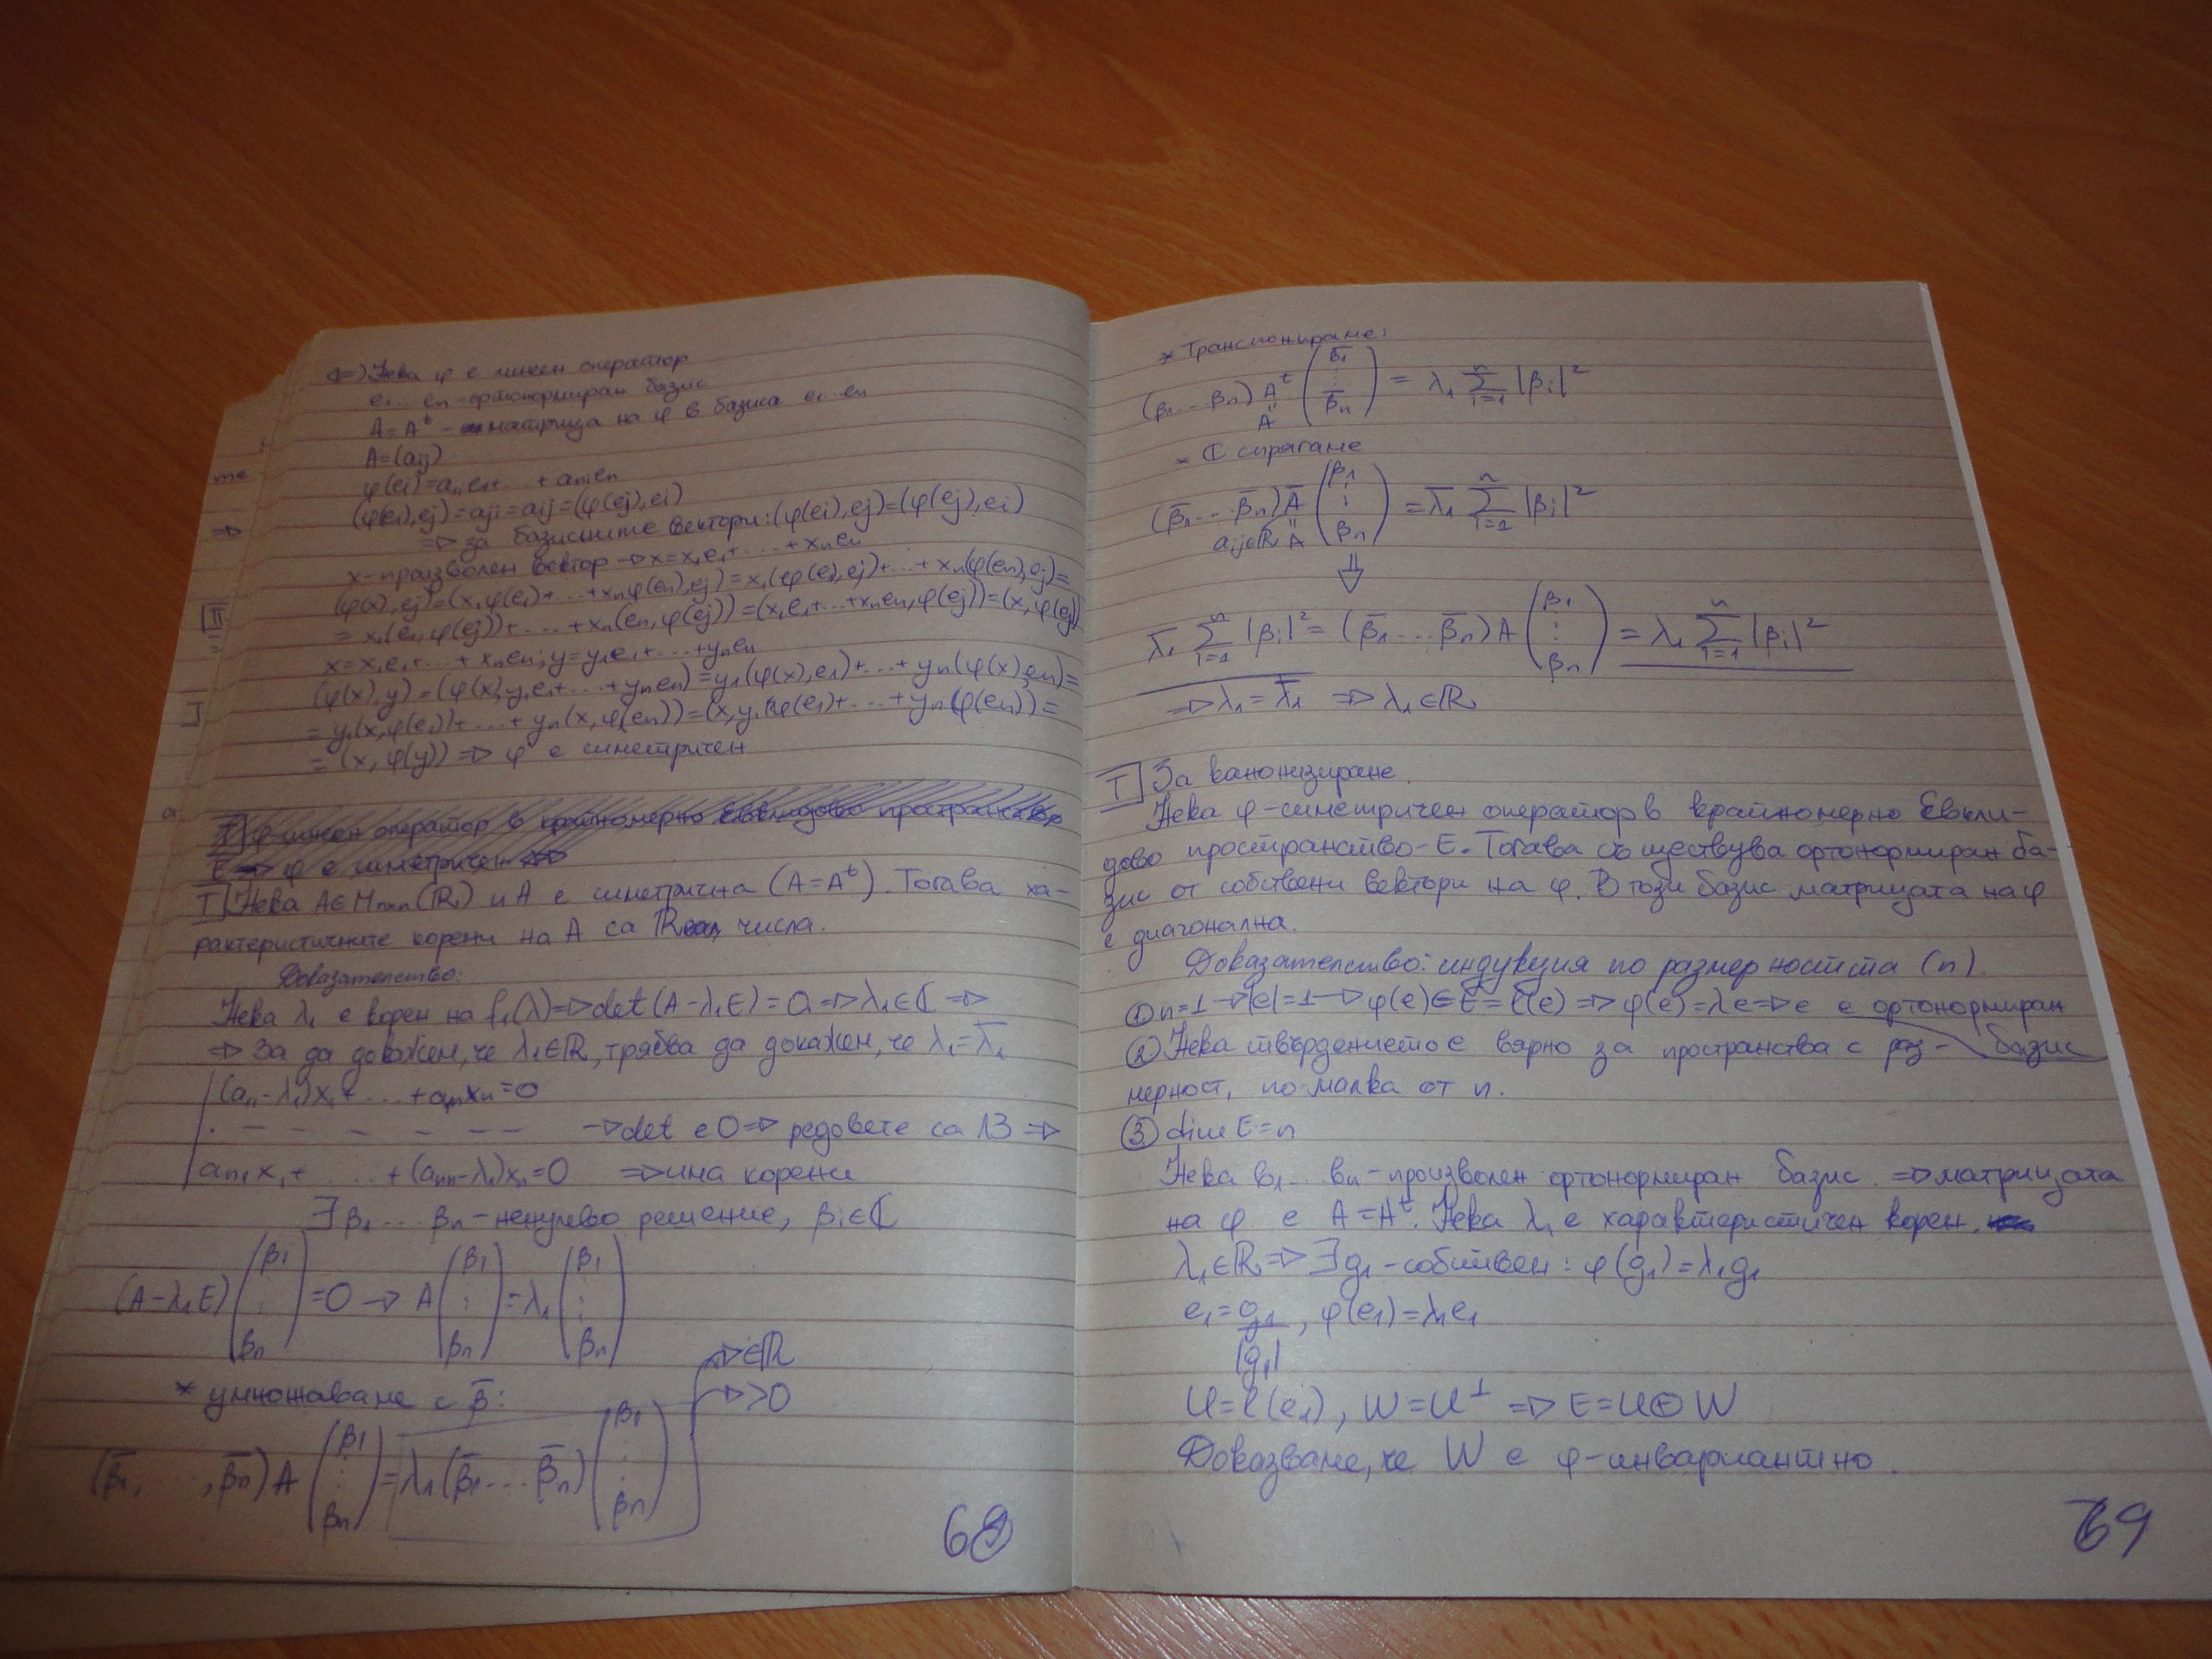 ⇐) Нека φ е линеен оператор
e₁...eₙ - ортонормиран базис
A=Aᵗ - матрица на φ в базиса e₁...eₙ
A=(aᵢⱼ)
φ(eᵢ)=a₁ᵢe₁+...+aₙᵢeₙ
(φ(eᵢ),eⱼ)=aⱼᵢ=aᵢⱼ=(φ(eⱼ),eᵢ)
⇒ за базисните вектори: (φ(eᵢ),eⱼ)=(φ(eⱼ),eᵢ)
x - произволен вектор → x=x₁e₁+...+xₙeₙ
(φ(x),eⱼ)=(x₁φ(e₁)+...+xₙφ(eₙ),eⱼ)=x₁(φ(e₁),eⱼ)+...+xₙ(φ(eₙ),eⱼ)=
=x₁(e₁,φ(eⱼ))+...+xₙ(eₙ,φ(eⱼ))=(x₁e₁+...+xₙeₙ,φ(eⱼ))=(x,φ(eⱼ))
x=x₁e₁+...+xₙeₙ; y=y₁e₁+...+yₙeₙ
(φ(x),y)=(φ(x),y₁e₁+...+yₙeₙ)=y₁(φ(x),e₁)+...+yₙ(φ(x),eₙ)=
=y₁(x,φ(e₁))+...+yₙ(x,φ(eₙ))=(x,y₁φ(e₁)+...+yₙφ(eₙ))=
=(x,φ(y)) ⇒ φ е симетричен
T φ линеен оператор в крайномерно Евклидово пространство
E ⇒ φ е симетричен
T Нека A∈Mₙₓₙ(ℝ) и A е симетрична (A=Aᵗ). Тогава ха-
рактеристичните корени на A са ℝеал. числа.
Доказателство:
Нека λ₁ е корен на f₁(λ) ⇒ det(A-λ₁E)=0 ⇒ λ₁∈ℂ ⇒
⇒ За да докажем, че λ₁∈ℝ, трябва да докажем, че λ₁=λ̄₁
(a₁₁-λ₁)x₁+...+a₁ₙxₙ=0
. – – – – – – → det е 0 ⇒ редовете са ЛЗ ⇒
aₙ₁x₁+...+(aₙₙ-λ₁)xₙ=0 ⇒ има корени
∃ β₁...βₙ - ненулево решение, βᵢ∈ℂ
(A-λ₁E)(β₁ ⋮ βₙ)=0 → A(β₁ ⋮ βₙ)=λ₁(β₁ ⋮ βₙ)
→∈ℝ
* умножаваме с β̄: →>0
(β̄₁,...,β̄ₙ)A(β₁ ⋮ βₙ)=λ₁(β̄₁...β̄ₙ)(β₁ ⋮ βₙ)
68
* Транспонираме:
(β₁...βₙ) Aᵗ (β̄₁ ⋮ β̄ₙ) = λ₁ Σᵢ₌₁ⁿ |βᵢ|²
" A
* ℂ спрягаме
(β̄₁...β̄ₙ) Ā (β₁ ⋮ βₙ) = λ̄₁ Σᵢ₌₁ⁿ |βᵢ|²
aᵢⱼ∈ℝ " A
⇓
λ̄₁ Σᵢ₌₁ⁿ |βᵢ|² = (β̄₁...β̄ₙ) A (β₁ ⋮ βₙ) = λ₁ Σᵢ₌₁ⁿ |βᵢ|²
⇒ λ₁=λ̄₁ ⇒ λ₁∈ℝ
T За канонизиране.
Нека φ - симетричен оператор в крайномерно Евкли-
дово пространство - E. Тогава съществува ортонормиран ба-
зис от собствени вектори на φ. В този базис матрицата на φ
е диагонална.
Доказателство: индукция по размерността (n).
① n=1 → |e|=1 → φ(e)∈E=ℓ(e) ⇒ φ(e)=λe ⇒ e е ортонормиран
② Нека твърдението е вярно за пространства с раз- базис
мерност, по малка от n.
③ dim E=n
Нека b₁...bₙ - произволен ортонормиран базис. ⇒ матрицата
на φ е A=Aᵗ. Нека λ₁ е характеристичен корен.
λ₁∈ℝ ⇒ ∃ g₁ - собствен: φ(g₁)=λ₁g₁
e₁=g₁/|g₁|, φ(e₁)=λ₁e₁
U=ℓ(e₁), W=U⊥ ⇒ E=U⊕W
Доказваме, че W е φ-инвариантно.
69